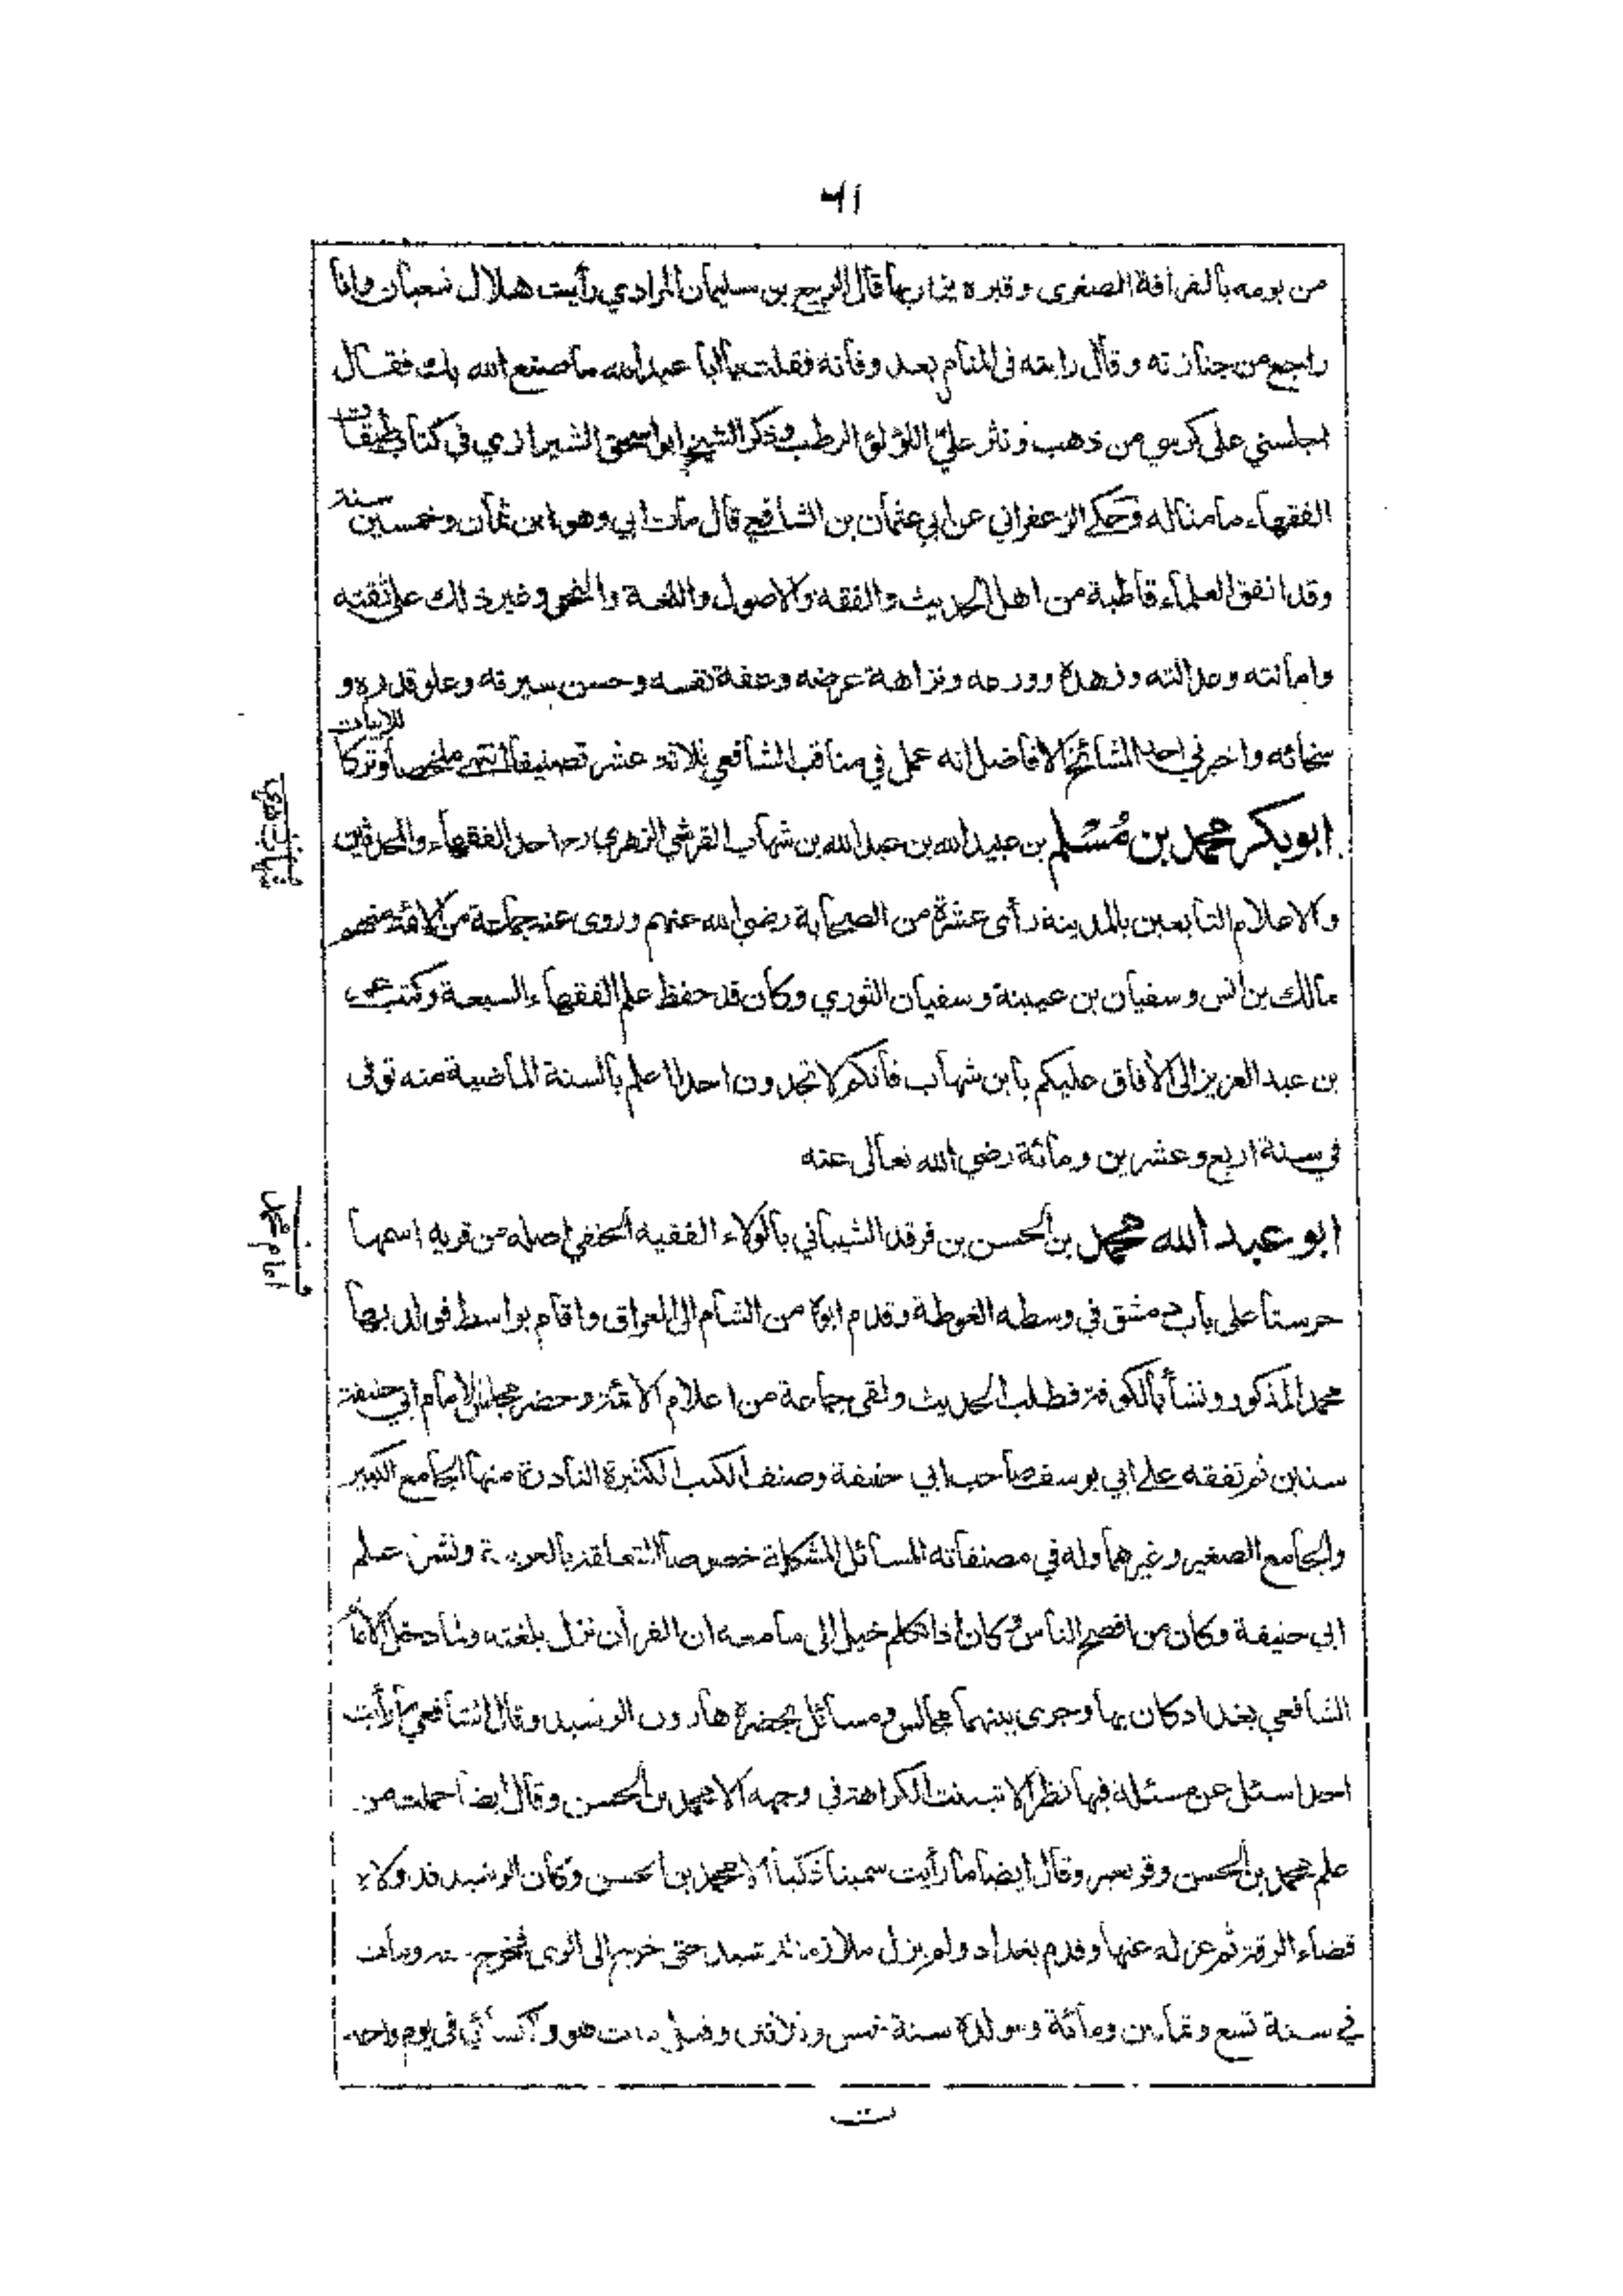 ٦١
من يومه بالقرافة الصغرى وقبره يزار بها قال الربيع بن سليمان المرادي رأيت هلال شعبان وانا
راجع من جنازته وقال رايته في المنام بعد وفاته فقلت يا ابا عبد الله ما صنع الله بك فقال
اجلسني على كرسي من ذهب ونثر علي اللؤلؤ الرطب وذكر الشيخ ابو اسحق الشيرازي في كتاب طبقات
الفقهاء ما مثاله وحكى الزعفراني عن ابي عثمان بن الشافعي قال مات ابي وهو ابن ثمان وخمسين سنة
وقد اتفق العلماء قاطبة من اهل الحديث والفقه والاصول واللغة والنحو وغير ذلك على ثقته
وامانته وعدالته وزهده وورعه ونزاهة عرضه وعفة نفسه وحسن سيرته وعلو قدره و
سخائه واخبرني احد المشائخ الافاضل انه عمل في مناقب الشافعي ثلاثة عشر تصنيفا انتهى ملخصا وتركا للابيات
ابو بكر محمد بن مُسْلم بن عبيد الله بن عبد الله بن شهاب القرشي الزهري رح احد الفقهاء والمحدثين
والاعلام التابعين بالمدينة رأى عشرة من الصحابة رضي الله عنهم وروى عنه جماعة من الائمة منهم
مالك بن انس وسفيان بن عيينة وسفيان الثوري وكان قد حفظ علم الفقهاء السبعة وكتب عمر
بن عبد العزيز الى الأفاق عليكم بابن شهاب فانكم لا تجدون احدا اعلم بالسنة الماضية منه توفى
في سنة اربع وعشرين ومائة رضي الله تعالى عنه
امام محمد
ابو عبد الله محمد بن الحسن بن فرقد الشيباني بالولاء الفقيه الحنفي اصله من قريه اسمها
حرستا على باب دمشق في وسطه الغوطة وقدم ابوه من الشام الى العراق واقام بواسط فولد بها
محمد المذكور ونشأ بالكوفة فطلب الحديث ولقى جماعة من اعلام الائمة وحضر مجلس الامام ابي حنيفة
سنين ثم تفقه على ابي يوسف صاحب ابي حنيفة وصنف الكتب الكثيرة النادرة منها الجامع الكبير
والجامع الصغير وغيرهما وله في مصنفاته المسائل المشكلة خصوصا المتعلقة بالعربية ونشر علم
ابي حنيفة وكان من افصح الناس وكان اذا تكلم خيل الى سامعه ان القرأن نزل بلغته ولما دخل الامام
الشافعي بغداد كان بها وجرى بينهما مجالس ومسائل بحضرة هارون الرشيد وقال الشافعي ما رأيت
احدا سئل عن مسئلة فيها نظر الا تبينت الكراهة في وجهه الا محمد بن الحسن وقال ايضا حملت من
علم محمد بن الحسن وقر بعير وقال ايضا ما رأيت سمينا ذكيا الا محمد بن الحسن وكان الرشيد قد ولاه
قضاء الرقة ثم عزله عنها وقدم بغداد ولم يزل ملازم الرشيد حتى خرج الى الري فخرج معه ومات
في سنة تسع وثمانين ومائة ومولده سنة خمس وثلاثين وقيل مات هو والكسائي في يوم واحد